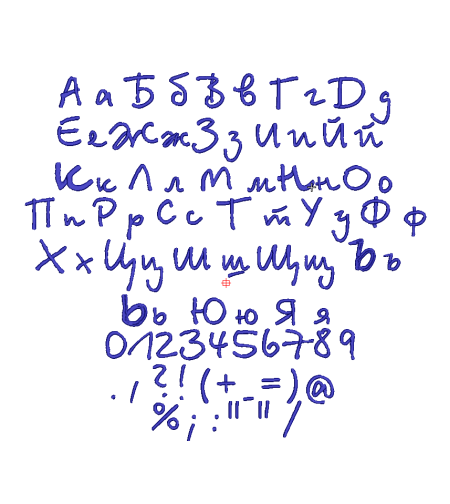 А а Б б В в Г г D д
Е е Ж ж З з И и Й й
К к Л л М м Н н О о
П п Р р С с Т т У у Ф ф
Х х Ц ц Ш ш Щ щ Ъ ъ
Ь ь Ю ю Я я
0123456789
. , ? ! ( + - = ) @
% ; : " " /